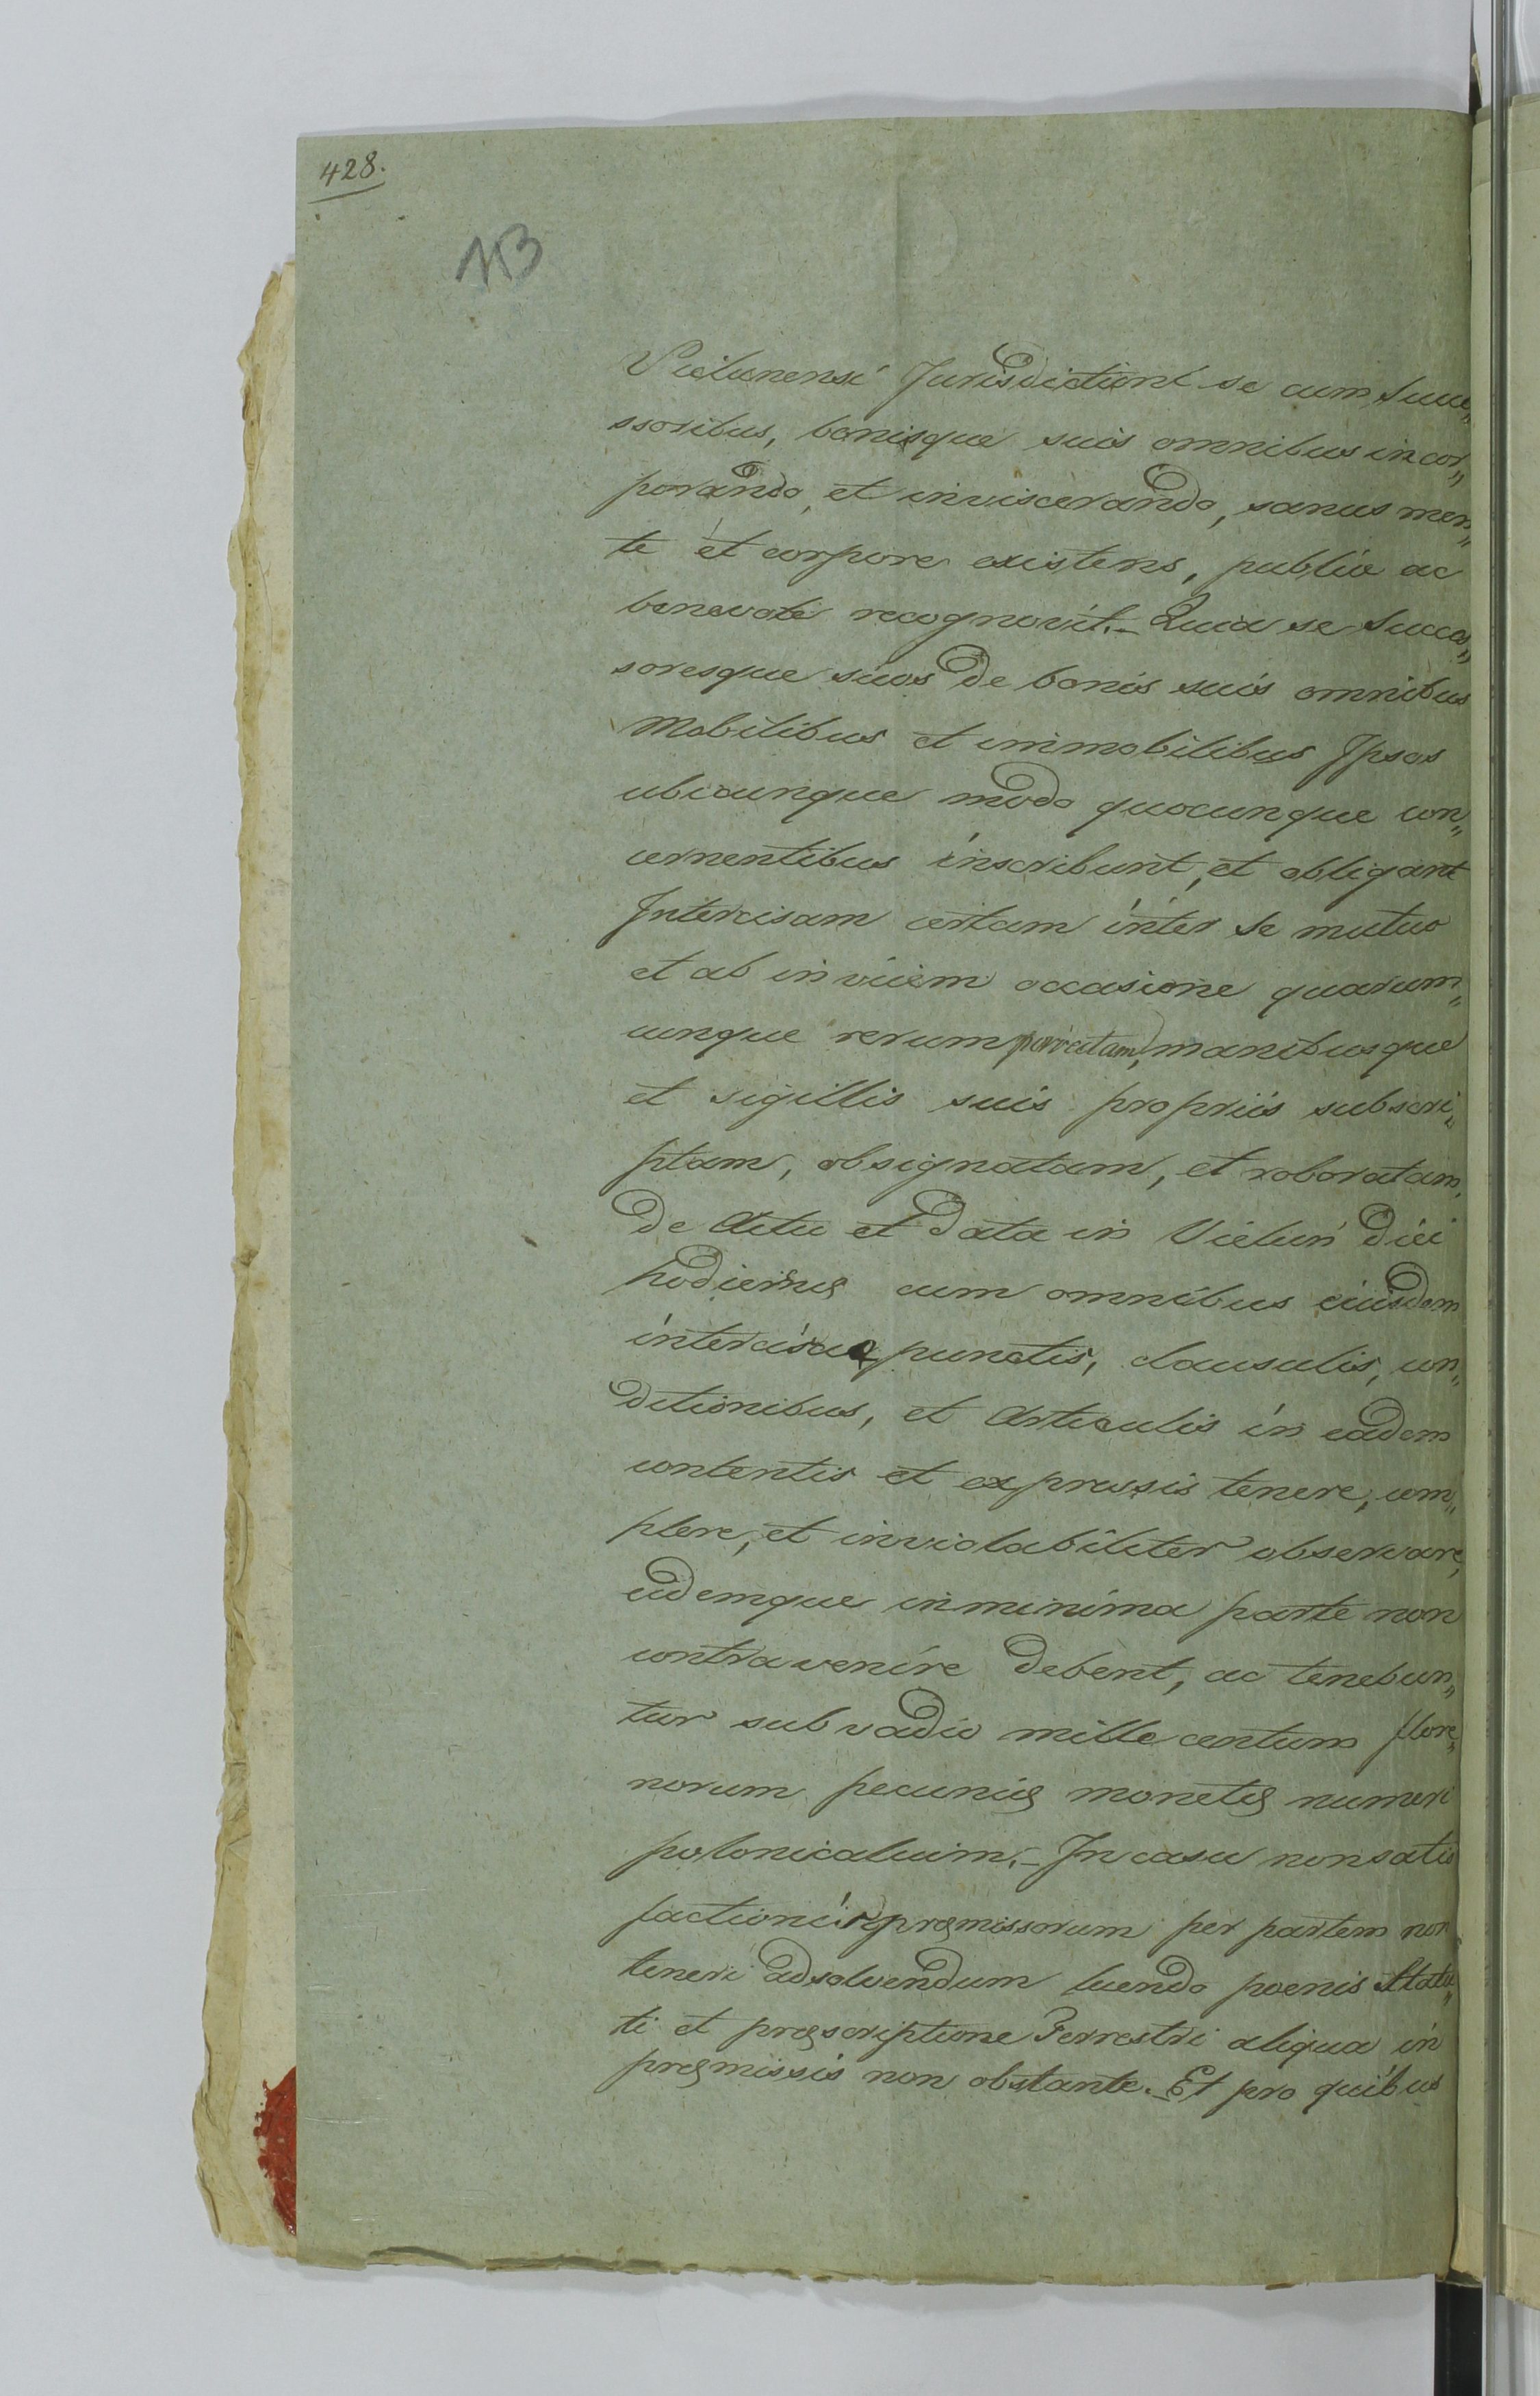 428.
113
Vielunensi Jurisdictioni se cum Succe„
ssoribus, bonisque suis omnibus incor„
porando, et inviscerando, sanus men„
te et corpore existens, publice ac
benevole recognovit. – Quia se Succes„
soresque suos de bonis suis omnibus
Mobilibus et immobilibus Ipsos
ubicunque modo quocunque con„
cernentibus inscribunt, et obligant
Intercisam certam inter se mutuo
et ab invicem occasione quarum„
cunque rerum manibusque
et sigillis suis propriis subscri„
ptam, obsignatam, et roboratam,
de Actu et data in Vieluń diei
hodiernę cum omnibus eiusdem
intercisae punctis, clausulis, con„
ditionibus, et Articulis in eadem
contentis et expressis tenere, com„
plere, et inviolabiliter observare,
eidemque in minima parte non
contravenire debent, ac tenebun„
tur sub vadio mille centum flore„
norum pecunię monetę numeri
polonicalium. – In casu non satis
factionis pręmissorum per partem non
teneri ad solvendum luendo poenis Statu„
ti et pręscriptione Terrestri aliqua in
pręmissis non obstante. Et pro quibus